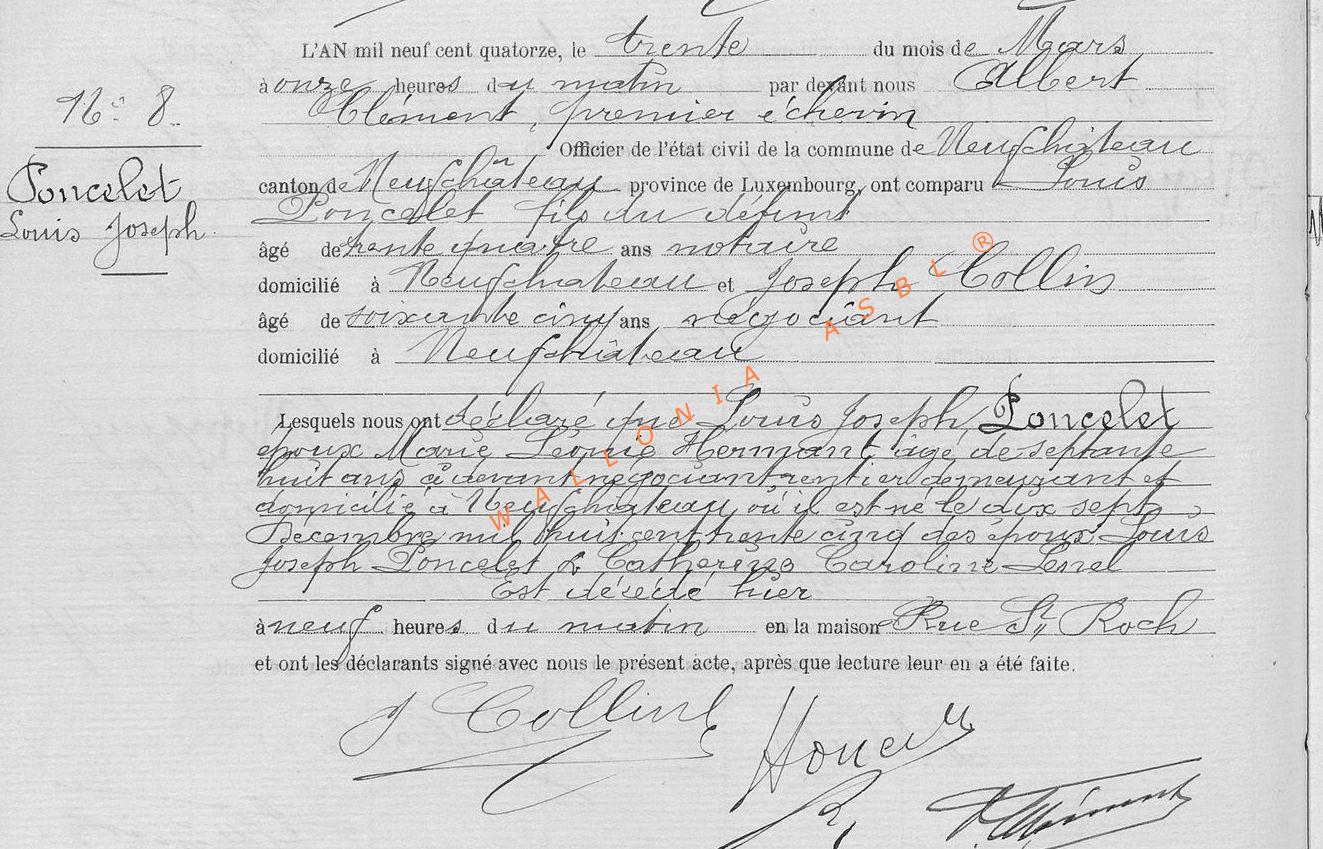 L'AN mil neuf cent quatorze, le trente du mois de Mars
à onze heures du matin par devant nous Albert
Nº 8
Clément, premier échevin
Officier de l'état civil de la commune de Neufchâteau
canton de Neufchâteau province de Luxembourg, ont comparu Louis
Poncelet
Poncelet fils du défunt
Louis Joseph
âgé de trente quatre ans notaire
domicilié à Neufchateau et Joseph Collin
âgé de soixante cinq ans négociant
domicilié à Neufchâteau
WALLONIA ASBL ®
Lesquels nous ont déclaré que Louis Joseph Poncelet
époux Marie Léonie Hermant âgé de septante
huit ans ci devant négociant rentier demeurant et
domicilié à Neufchateau où il est né le dix sept
Décembre mil huit cent trente cinq des époux Louis
Joseph Poncelet & Catherine Caroline
Est décédé hier
à neuf heures du matin en la maison Rue St Roch
et ont les déclarants signé avec nous le présent acte, après que lecture leur en a été faite.
J Collin
Clément